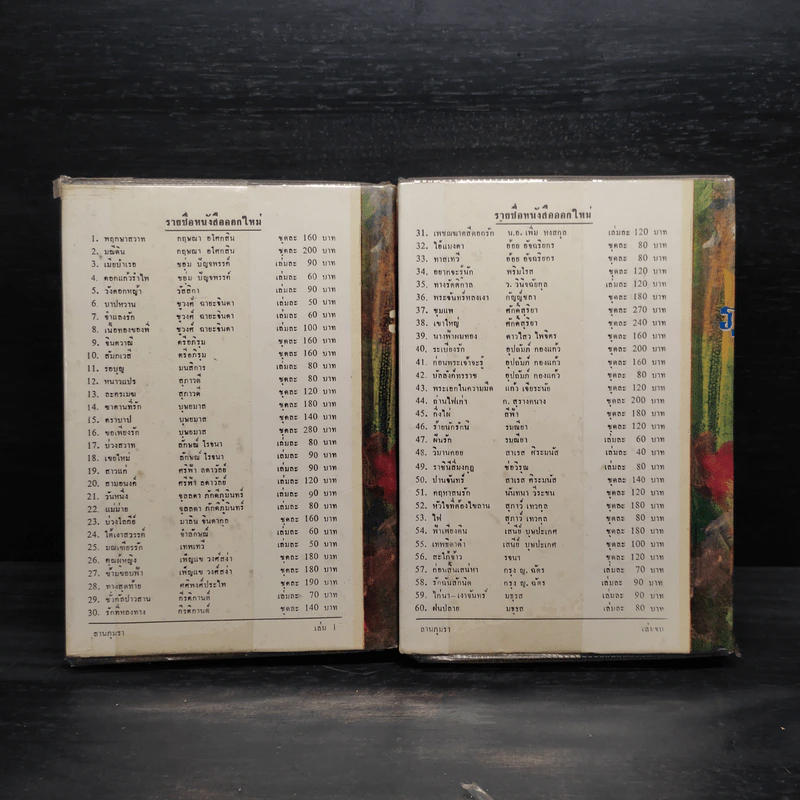 รายชื่อหนังสือออกใหม่
1. พฤกษาสวาท กฤษณา อโศกสิน ชุดละ 160 บาท
2. มณีดิน กฤษณา อโศกสิน ชุดละ 200 บาท
3. เมียบำเรอ ชอุ่ม ปัญจพรรค์ เล่มละ 90 บาท
4. ดอกแก้วรำไพ ชอุ่ม ปัญจพรรค์ เล่มละ 60 บาท
5. วังดอกหญ้า วัสสิกา เล่มละ 90 บาท
6. บาปหวาน ชูวงศ์ ฉายะจินดา เล่มละ 50 บาท
7. จำแลงรัก ชูวงศ์ ฉายะจินดา เล่มละ 60 บาท
8. เนื้อทองของพี่ ชูวงศ์ ฉายะจินดา เล่มละ 100 บาท
9. จินตวาณี ตรีอภิรุม ชุดละ 160 บาท
10. สัมภเวสี ตรีอภิรุม ชุดละ 160 บาท
11. รอบูญ มนสิการ เล่มละ 80 บาท
12. หนาวแปร สุภาวดี ชุดละ 80 บาท
13. ละครเมฆ สุภาวดี ชุดละ 120 บาท
14. ซาตานที่รัก บุษยมาส ชุดละ 180 บาท
15. ตราบาป บุษยมาส ชุดละ 140 บาท
16. ขอเพียงรัก บุษยมาส ชุดละ 280 บาท
17. บ่วงสวาท ลักษณ์ โรจนา เล่มละ 80 บาท
18. เขยใหม่ ลักษณ์ โรจนา เล่มละ 90 บาท
19. สาวแก่ ศรีฟ้า ลดาวัลย์ เล่มละ 90 บาท
20. สามอนงค์ ศรีฟ้า ลดาวัลย์ เล่มละ 120 บาท
21. วันหนึ่ง จุลลดา ภักดีภูมินทร์ เล่มละ 90 บาท
22. แม่ม่าย จุลลดา ภักดีภูมินทร์ เล่มละ 80 บาท
23. บ่วงโลกีย์ มาลิน จินดากุล ชุดละ 160 บาท
24. ใต้เงาสวรรค์ จำลักษณ์ เล่มละ 60 บาท
25. มณเฑียรรัก เทพเทวี เล่มละ 50 บาท
26. คุณผู้หญิง เพ็ญแข วงศ์สง่า ชุดละ 180 บาท
27. ข้ามขอบฟ้า เพ็ญแข วงศ์สง่า ชุดละ 180 บาท
28. ทางสุดท้าย ศศิพงศ์ประไพ ชุดละ 190 บาท
29. กีรติกานต์ เล่มละ 70 บาท
30. รักที่หลงทาง กีรติกานต์ ชุดละ 140 บาท
ลานภุมรา เล่ม 1
รายชื่อหนังสือออกใหม่
31. เพชฌฆาตสีดอกรัก น.อ. เพิ่ม หงสกุล เล่มละ 120 บาท
32. ไอ้แมงดา อ้อย อัจฉริยกร ชุดละ 80 บาท
33. ทาสเทวี อ้อย อัจฉริยกร ชุดละ 80 บาท
34. อยากจะรู้นัก พริมโรส ชุดละ 120 บาท
35. ทางรัตติกาล ว. วินิจฉัยกุล เล่มละ 120 บาท
36. พระจันทร์หลงเงา กัญญ์ชลา ชุดละ 180 บาท
37. ชุมแพ ศักดิ์สุริยา ชุดละ 270 บาท
38. เขาใหญ่ ศักดิ์สุริยา ชุดละ 240 บาท
39. นางฟ้าผมทอง ดาวไสว ไพจิตร ชุดละ 160 บาท
40. ระเบียงรัก อุปถัมภ์ กองแก้ว ชุดละ 200 บาท
41. ก่อนพระเจ้าจะรู้ อุปถัมภ์ กองแก้ว ชุดละ 160 บาท
42. บัลลังก์ทรราช อุปถัมภ์ กองแก้ว ชุดละ 80 บาท
43. พระเอกในความมืด แก้ว เจียระนัย ชุดละ 120 บาท
44. ถ่านไฟเก่า ก. สุรางคนางค์ ชุดละ 200 บาท
45. กิ่งไผ่ สีฟ้า ชุดละ 180 บาท
46. ร้ายนักรักนี้ รมณียา ชุดละ 120 บาท
47. ฝันรัก รมณียา เล่มละ 60 บาท
48. วิมานคอย สาเรส ศิระมนัส เล่มละ 40 บาท
49. ราชินีสีมงกุฎ ช่อวิรุณ เล่มละ 80 บาท
50. ปานจันทร์ สาเรส ศิระมนัส ชุดละ 140 บาท
51. ฤทุหาสนรัก นันทนา วีระชน ชุดละ 120 บาท
52. หัวใจที่ต้องไขลาน สุภาว์ เทวกุล ชุดละ 120 บาท
53. ไฟ สุภาว์ เทวกุล ชุดละ 80 บาท
54. ฟ้าเพียงดิน เสนีย์ บุษปะเกศ ชุดละ 160 บาท
55. เทพธิดาดำ เสนีย์ บุษปะเกศ ชุดละ 100 บาท
56. สะใภ้จ้าว รจนา ชุดละ 120 บาท
57. ก่อนสิ้นเสน่หา กรุง ญ. ฉัตร เล่มละ 70 บาท
58. รักฉันสักนิด กรุง ญ. ฉัตร เล่มละ 90 บาท
59. ไก่นา-เงาจันทร์ มธุรส เล่มละ 90 บาท
60. ฝนปลาย มธุรส เล่มละ 80 บาท
ลานภุมรา เล่มจบ